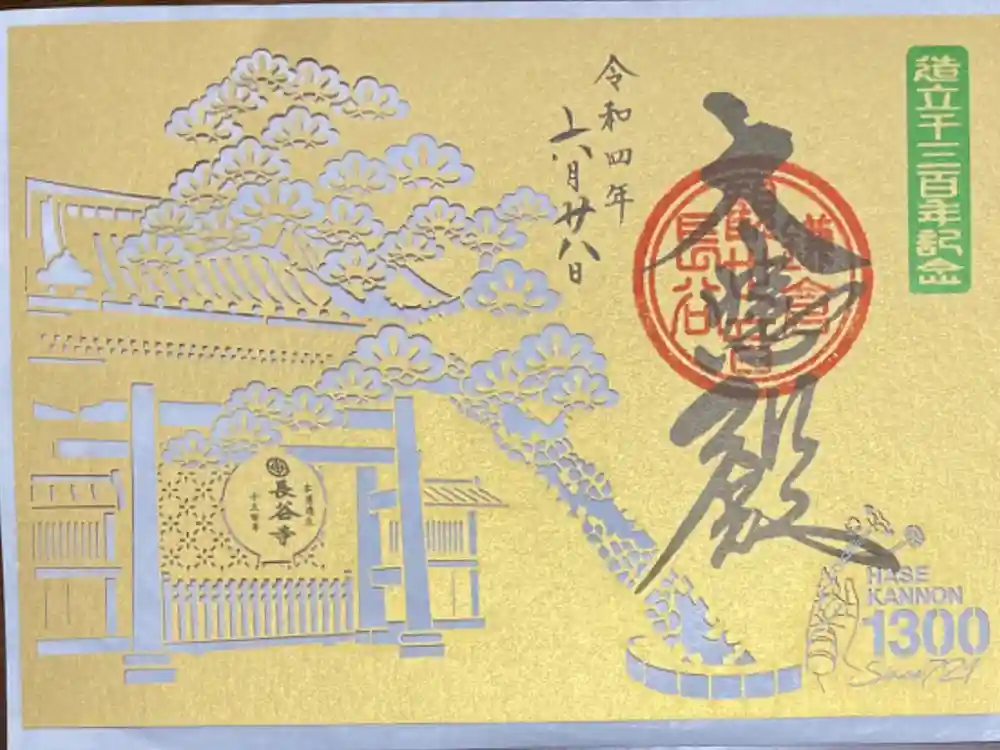 造立千三百年記念
大悲殿
鎌倉
長谷
令和四年
六月廿八日
長谷寺
HASE
KANNON
1300
Since 721